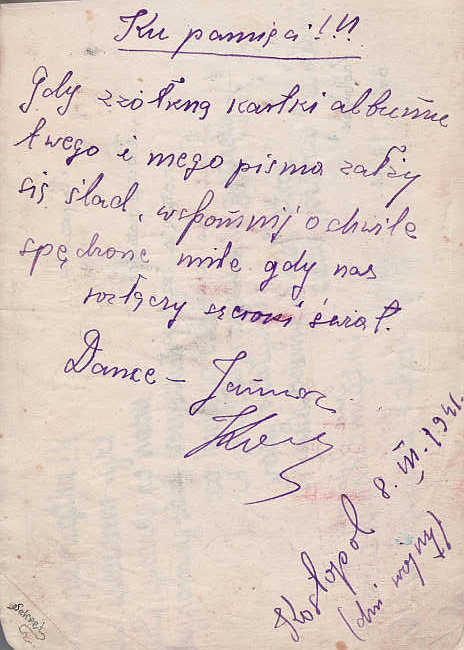 Ku pamięci!!!
Gdy zżółkną kartki albumu
twego i mego pisma zatży
się ślad, wspomnij o chwile
spędzone mile gdy nas
rozłączy szeroki świat.
Dance - Janusz
Kostopol 8. VII. 1941.
(dni wojny)